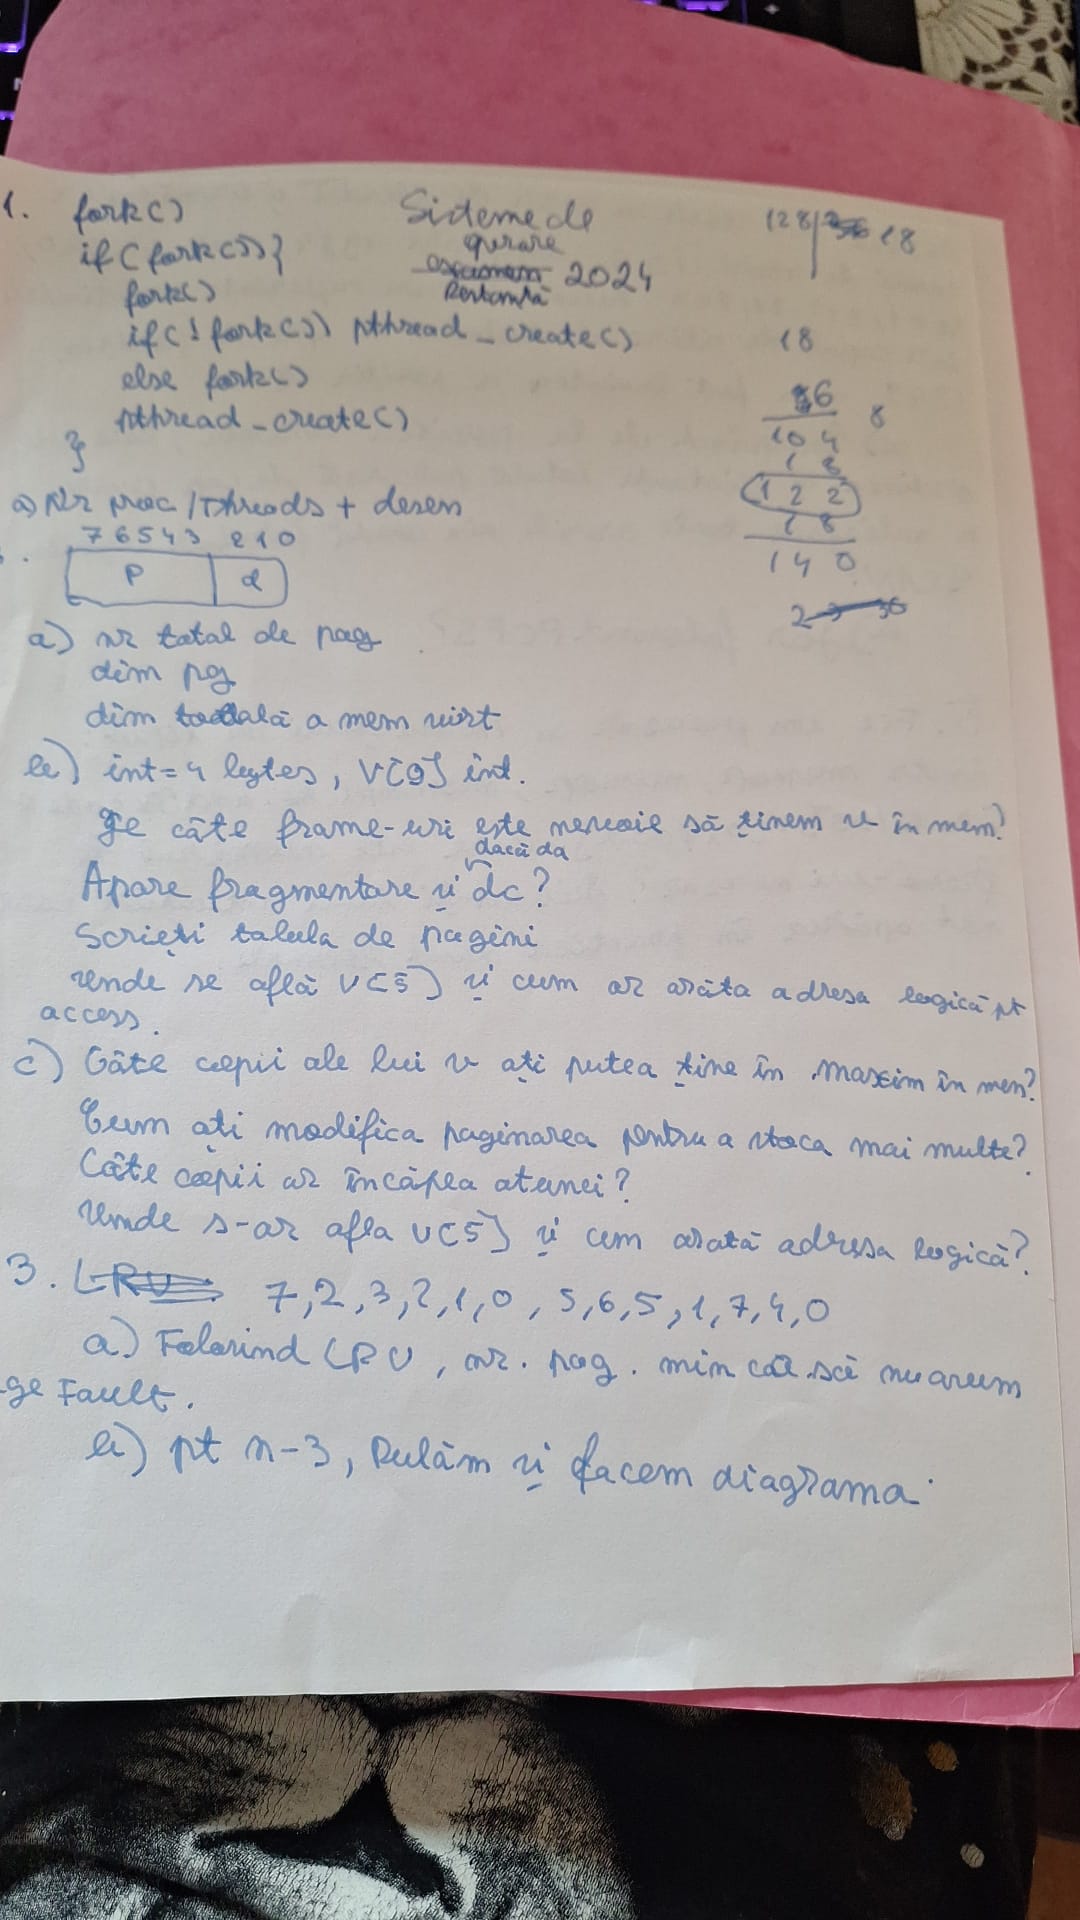 1. fork()
if(fork()){
fork()
if(!fork()) pthread_create()
else fork()
pthread_create()
}
Sisteme de
operare
examen 2024
Restanță
128 256 18
18
86
104 8
18
122
18
140
2 36
a) Nr proc /Threads + desen
7 6 5 4 3 2 1 0
P d
a) nr total de pag
dim pg
dim totală a mem virt
b) int=4 bytes, V[9] int.
De câte frame-uri este nevoie să ținem v în mem?
dacă da
Apare fragmentare și dc?
Scrieți tabula de pagini
unde se află V[5] și cum ar arăta adresa logică pt
access.
c) Câte copii ale lui v ați putea ține în maxim în mem?
Cum ați modifica paginarea pentru a stoca mai multe?
Câte copii ar încăpea atunci?
Unde s-ar afla V[5] și cum arată adresa logică?
3. LRU 7,2,3,2,1,0,5,6,5,1,7,4,0
a) Folosind LRU, nr. pag. min câ să nu avem
-ge Fault.
b) pt n-3, Rulăm și facem diagrama